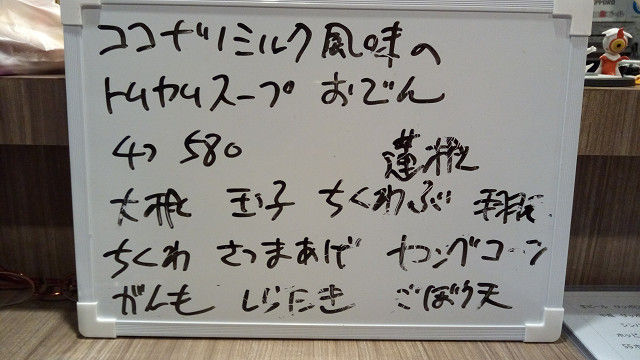 ココナツミルク風味の
トムヤムスープ おでん
4つ 580 蓮根
大根 玉子 ちくわぶ
ちくわ さつまあげ ヤングコーン
がんも しらたき ごぼう天